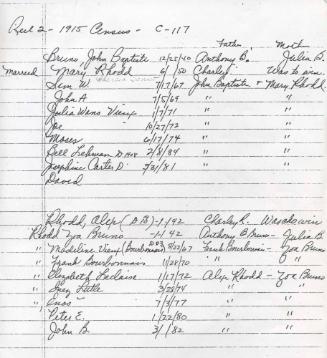 Reel 2 - 1915 Census - C-117
Father, Moth
Bruno, John Baptiste 12/25/40 Anthony B. Julia B.
Married Mary Rhodd 6/50 Charley Was to win
Sim W. 7/17/67 John Baptiste + Mary Rhodd
John A 7/5/69 " "
Julia Wano Vieux 1/9/71 " "
Joe 10/27/72 " "
Moses 6/17/74 " "
Dell Lehman 2/8/84 " "
Josephine Carter D. /31/81 " "
David
Rhodd, Alex (DB) -1-/42 Charley R. Wasato win
Rhodd Zoa Bruno -1-/42 Anthony Bruno - Julia B.
" Madeline Vieux (Bourbonnais D83) 8/22/67 Frank Bourbonnais - Zoa Bruno
" Frank Bourbonnais 1/28/70 " "
" Elizabeth Laclaire 1/17/72 Alex Rhodd - Zoa Bruno
" Little 3/22/74 " "
" 7/4/77 " "
" Peter E. 1/22/80 " "
John B. 3/1/82 " "